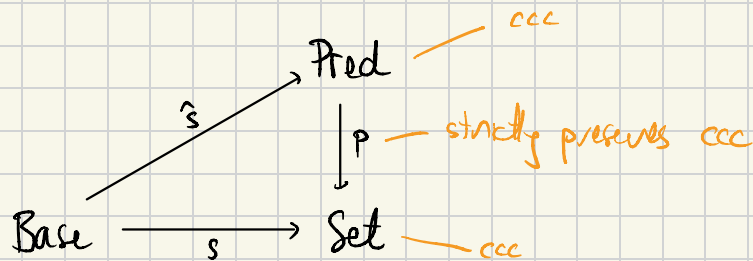 ccc
Pred
ŝ
p
strictly preserves ccc
Base
s
Set
ccc